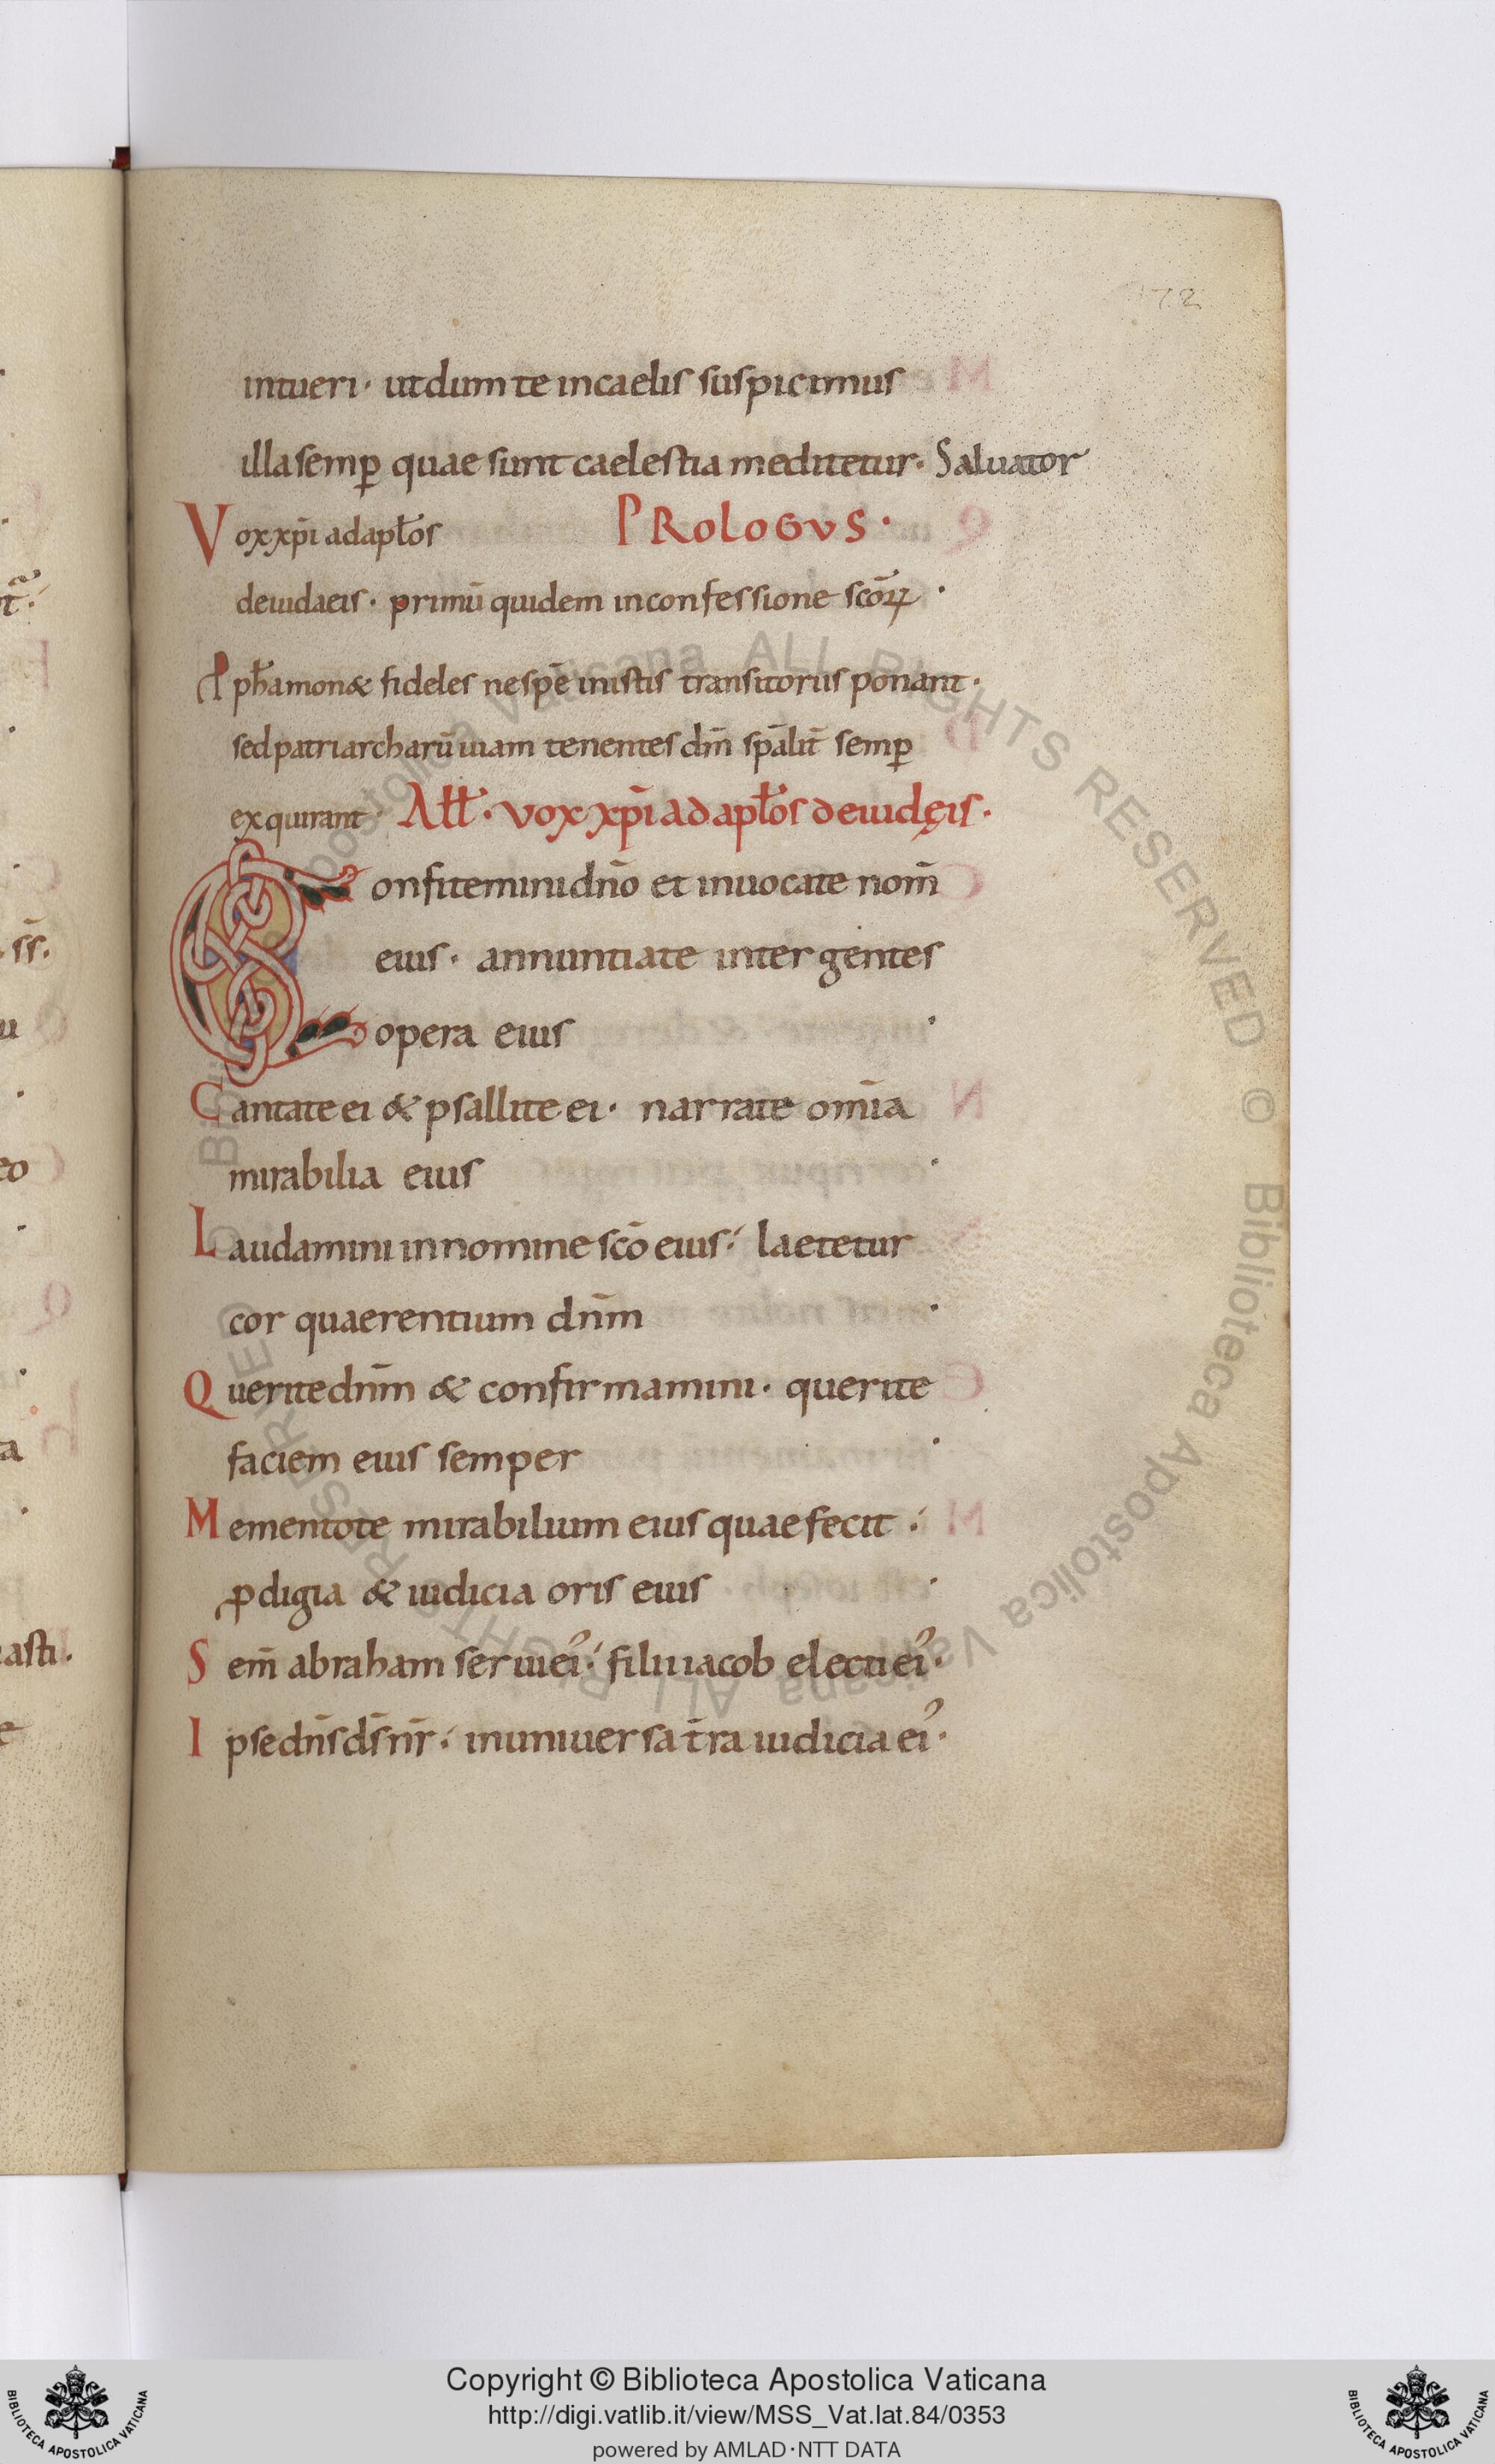 172
intueri · ut dum te in caelis suspicimus
illa semꝑ quae sunt caelestia meditetur · Saluator
Vox xp̄i ad apłos PROLOGVS ·
de iudaeis · primū quidem in confessione scōꝝ ·
ꝓpħa monet fideles ne spē in istis transitoriis ponant ·
sed patriarcharū uiam tenentes dm̄ spālit̄ semꝑ
exquirant · Alł · vox xp̄i ad apłos de iudęis ·
Confitemini dn̄o et inuocate nom̄
eius · annuntiate inter gentes
opera eius ·
Cantate ei & psallite ei · narrate om̄ia
mirabilia eius ·
Laudamini in nomine scō eius ·́ laetetur
cor quaerentium dn̄m ·
Querite dn̄m & confirmamini · querite
faciem eius semper ·
Mementote mirabilium eius quae fecit ·́
ꝓdigia & iudicia oris eius ·
Sem̄ abraham serui ei᾿ ·́ filii iacob electi ei᾿ ·
Ipse dn̄s ds̄ nr̄ ·́ in uniuersa t̄ra iudicia ei᾿ ·
Biblioteca Apostolica Vaticana ALL RIGHTS RESERVED ©
BIBLIOTECA APOSTOLICA VATICANA
Copyright © Biblioteca Apostolica Vaticana
http://digi.vatlib.it/view/MSS_Vat.lat.84/0353
powered by AMLAD·NTT DATA
BIBLIOTECA APOSTOLICA VATICANA